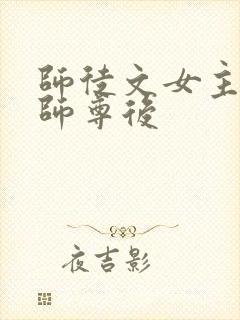 師徒文女主
師尊後
夜吉影